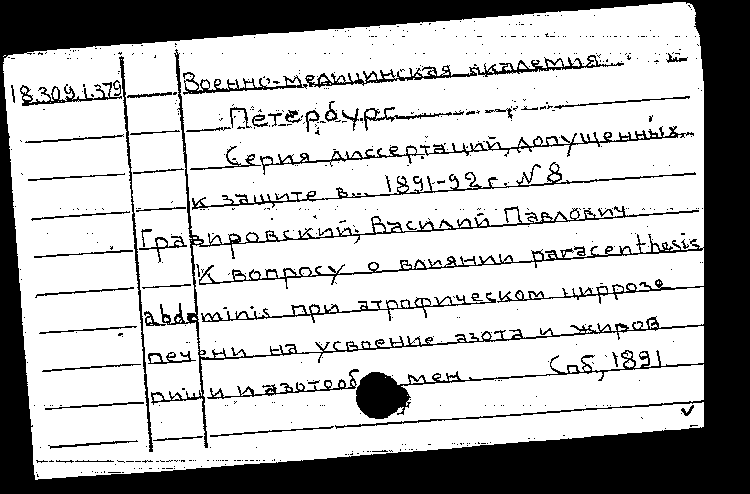 18.309.1.379 Военно-медицинская академия.
Петербург
Серия диссертаций, допущенных
к защите в... 1891-92 г. N 8
Гравировский, Василий Павлович
К вопросу о влиянии paracenthesis
abdominis при атрофическом циррозе
печени на усвоение азота и жиров
пищи и азотообмен. Спб, 1891